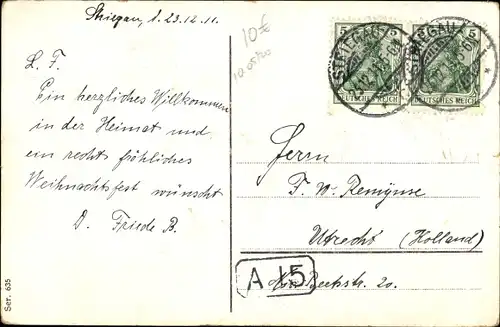 Striegau, d. 23.12.11.
10€
L. F.
Ein herzliches Willkommen
in der Heimat und
ein recht fröhliches
Weihnachtsfest wünscht
D. Friede B.
Ser. 635
5 5
DEUTSCHES REICH DEUTSCHES REICH
STRIEGAU
23.12.
STRIEGAU
Herrn
F. W.
Utrecht (Holland)
A 15
20.